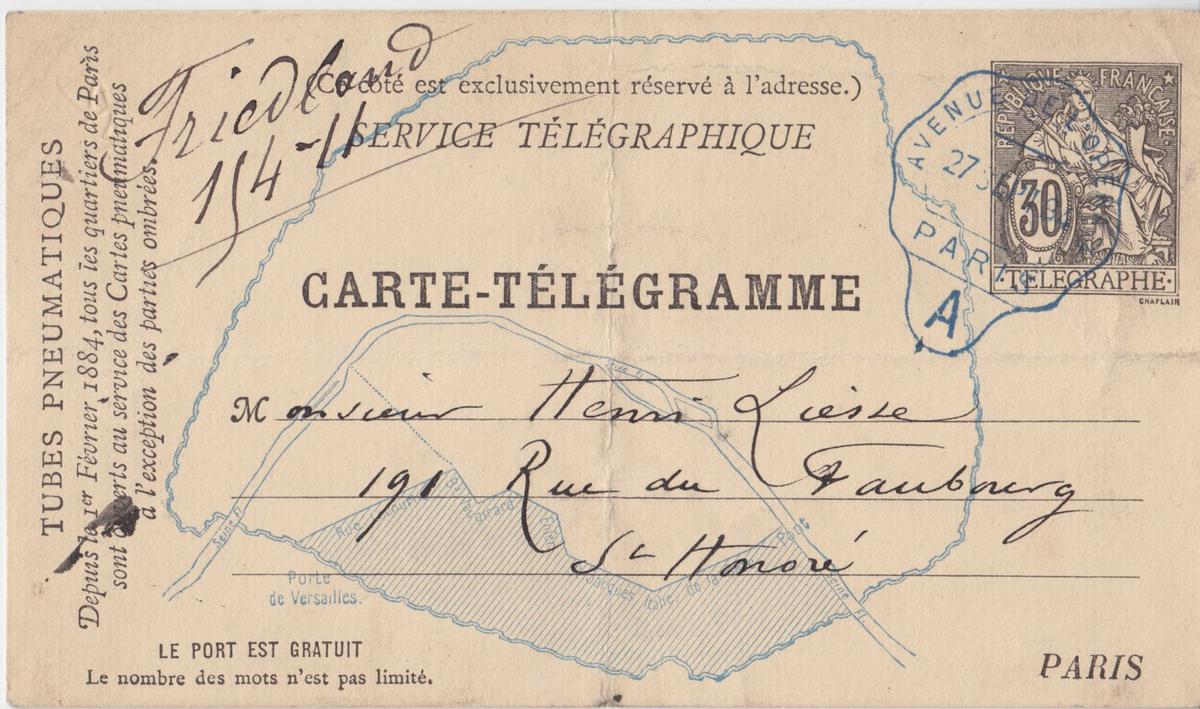 Friedland
154-11
(Ce côté est exclusivement réservé à l'adresse.)
SERVICE TÉLÉGRAPHIQUE
CARTE-TÉLÉGRAMME
RÉPUBLIQUE FRANÇAISE
30
TÉLÉGRAPHE
CHAPLAIN
AVENUE DE L'OPERA
27
PARIS
A
TUBES PNEUMATIQUES
Depuis le 1er Février 1884, tous les quartiers de Paris
sont ouverts au service des Cartes pneumatiques
à l'exception des parties ombrées.
Monsieur Henri Liesse
191 Rue du Faubourg
St Honoré
Seine Fl.
Rue
Vaugirard
Enfer
Jacques
Italie
de la
Pont
Seine Fl.
Porte
de Versailles.
LE PORT EST GRATUIT
Le nombre des mots n'est pas limité.
PARIS